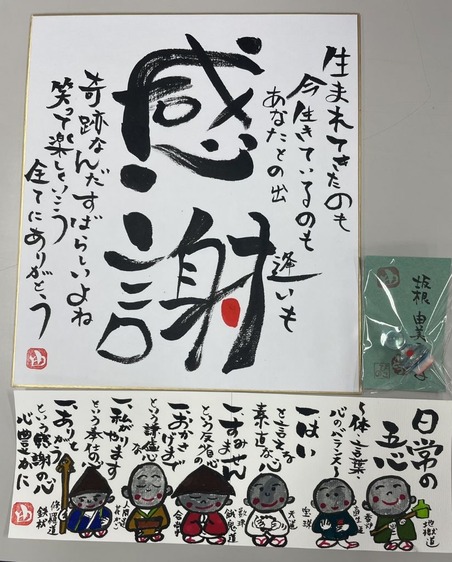 生まれてきたのも
今生きているのも
あなたとの出
逢いも
感謝
奇跡なんだすばらしいよね
笑って楽しくいこう
全てにありがとう
坂根 由美子
日常の
五心
〜体・言葉
心のバランス〜
一、はい
と言える
素直な心
一、すみません
という反省の心
一、おかげさま
という謙虚な心
一、私がやります
という奉仕の心
一、ありがとう
という感謝の心
心豊かに
地獄道
畜生道
宝珠
天道
餓鬼道
合掌
修羅道